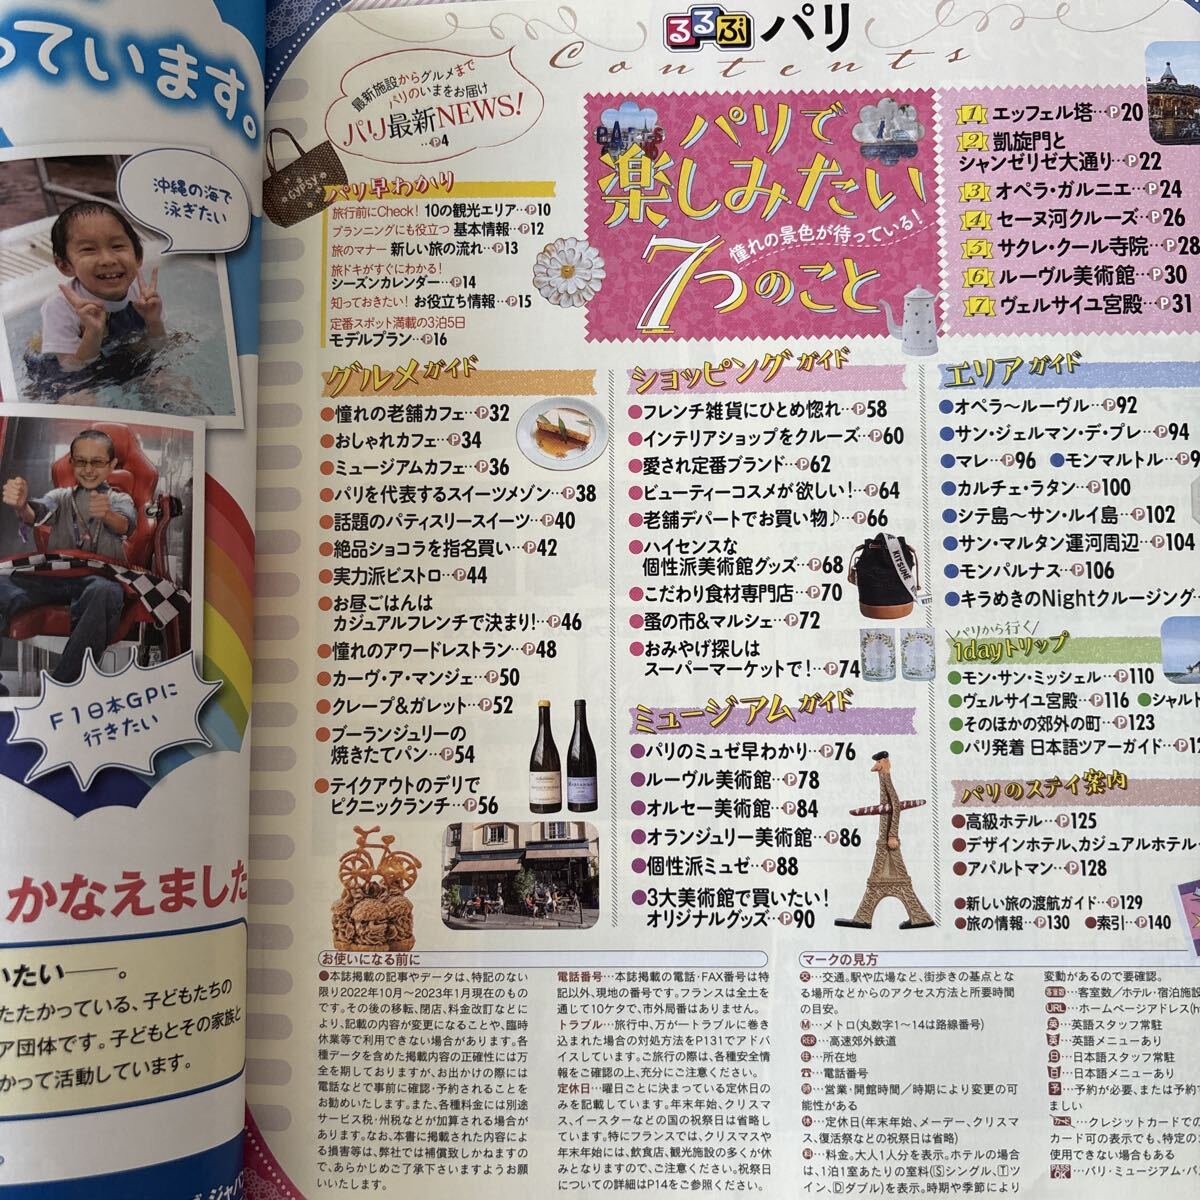 っています。
沖縄の海で
泳ぎたい
F1日本GPに
行きたい
かなえました
いたい――。
たたかっている、子どもたちの
です。子どもとその家族と
ア団体です。
かって活動しています。
るるぶ パリ
Contents
最新施設からグルメまで
パリのいまをお届け
パリ最新NEWS!
…P4
パリ早わかり
旅行前にCheck! 10の観光エリア…P10
プランニングにも役立つ 基本情報…P12
旅のマナー 新しい旅の流れ…P13
旅ドキがすぐにわかる!
シーズンカレンダー…P14
知っておきたい! お役立ち情報…P15
定番スポット満載の3泊5日
モデルプラン…P16
パリで
楽しみたい
憧れの景色が待っている!
7つのこと
1 エッフェル塔…P20
2 凱旋門と
シャンゼリゼ大通り…P22
3 オペラ・ガルニエ…P24
4 セーヌ河クルーズ…P26
5 サクレ・クール寺院…P28
6 ルーヴル美術館…P30
7 ヴェルサイユ宮殿…P31
グルメガイド
●憧れの老舗カフェ…P32
●おしゃれカフェ…P34
●ミュージアムカフェ…P36
●パリを代表するスイーツメゾン…P38
●話題のパティスリースイーツ…P40
●絶品ショコラを指名買い…P42
●実力派ビストロ…P44
●お昼ごはんは
カジュアルフレンチで決まり!…P46
●憧れのアワードレストラン…P48
●カーヴ・ア・マンジェ…P50
●クレープ&ガレット…P52
●ブーランジュリーの
焼きたてパン…P54
●テイクアウトのデリで
ピクニックランチ…P56
ショッピングガイド
●フレンチ雑貨にひとめ惚れ…P58
●インテリアショップをクルーズ…P60
●愛され定番ブランド…P62
●ビューティーコスメが欲しい!…P64
●老舗デパートでお買い物♪…P66
●ハイセンスな
個性派美術館グッズ…P68
●こだわり食材専門店…P70
●蚤の市&マルシェ…P72
●おみやげ探しは
スーパーマーケットで!…P74
KITSUNE
ミュージアムガイド
●パリのミュゼ早わかり…P76
●ルーヴル美術館…P78
●オルセー美術館…P84
●オランジュリー美術館…P86
●個性派ミュゼ…P88
●3大美術館で買いたい!
オリジナルグッズ…P90
エリアガイド
●オペラ~ルーヴル…P92
●サン・ジェルマン・デ・プレ…P94
●マレ…P96 ●モンマルトル…P9
●カルチェ・ラタン…P100
●シテ島~サン・ルイ島…P102
●サン・マルタン運河周辺…P104
●モンパルナス…P106
●キラめきのNightクルージング…
パリから行く
1dayトリップ
●モン・サン・ミッシェル…P110
●ヴェルサイユ宮殿…P116 ●シャルト
●そのほかの郊外の町…P123
●パリ発着 日本語ツアーガイド…P12
パリのステイ案内
●高級ホテル…P125
●デザインホテル、カジュアルホテル…
●アパルトマン…P128
●新しい旅の渡航ガイド…P129
●旅の情報…P130 ●索引…P140
お使いになる前に
●本誌掲載の記事やデータは、特記のない
限り2022年10月~2023年1月現在のもの
です。その後の移転、閉店、料金改訂などに
より、記載の内容が変更になることや、臨時
休業等で利用できない場合があります。各
種データを含めた掲載内容の正確性には万
全を期しておりますが、お出かけの際には
電話などで事前に確認・予約されることを
お勧めいたします。また、各種料金には別途
サービス税・州税などが加算される場合が
あります。なお、本書に掲載された内容によ
る損害等は、弊社では補償致しかねますの
で、あらかじめご了承くださいますようお願
いいたします。
電話番号…本誌掲載の電話・FAX番号は特
記以外、現地の番号です。フランスは全土を
通じて10ケタで、市外局番はありません。
トラブル…旅行中、万が一トラブルに巻き
込まれた場合の対処方法をP131でアドバ
イスしています。ご旅行の際は、各種安全情
報をご確認の上、充分にご注意ください。
定休日…曜日ごとに決まっている定休日の
みを記載しています。年末年始、クリスマ
ス、イースターなどの国の祝祭日は省略し
ています。特にフランスでは、クリスマスや
年末年始には、飲食店、観光施設の多くが休
みとなりますので、ご注意ください。祝祭日
についての詳細はP14をご参照ください。
マークの見方
交…交通。駅や広場など、街歩きの基点とな
る場所などからのアクセス方法と所要時間
の目安。
M…メトロ(丸数字1~14は路線番号)
RER…高速郊外鉄道
住…所在地
☎…電話番号
時…営業・開館時間/時期により変更の可
能性がある
休…定休日(年末年始、メーデー、クリスマ
ス、復活祭などの祝祭日は省略)
料…料金。大人1人分を表示。ホテルの場合
は、1泊1室あたりの室料(Sシングル、Tツ
イン、Dダブル)を表示。時期や季節により
変動があるので要確認。
客室数…客室数/ホテル・宿泊施設
URL…ホームページアドレス(h
英…英語スタッフ常駐
英…英語メニューあり
日…日本語スタッフ常駐
日…日本語メニューあり
予…予約が必要、または予約す
ましい
カード…クレジットカードでの
カード可の表示でも、特定の
使用できない場合もある
PASS OK…パリ・ミュージアム・パス